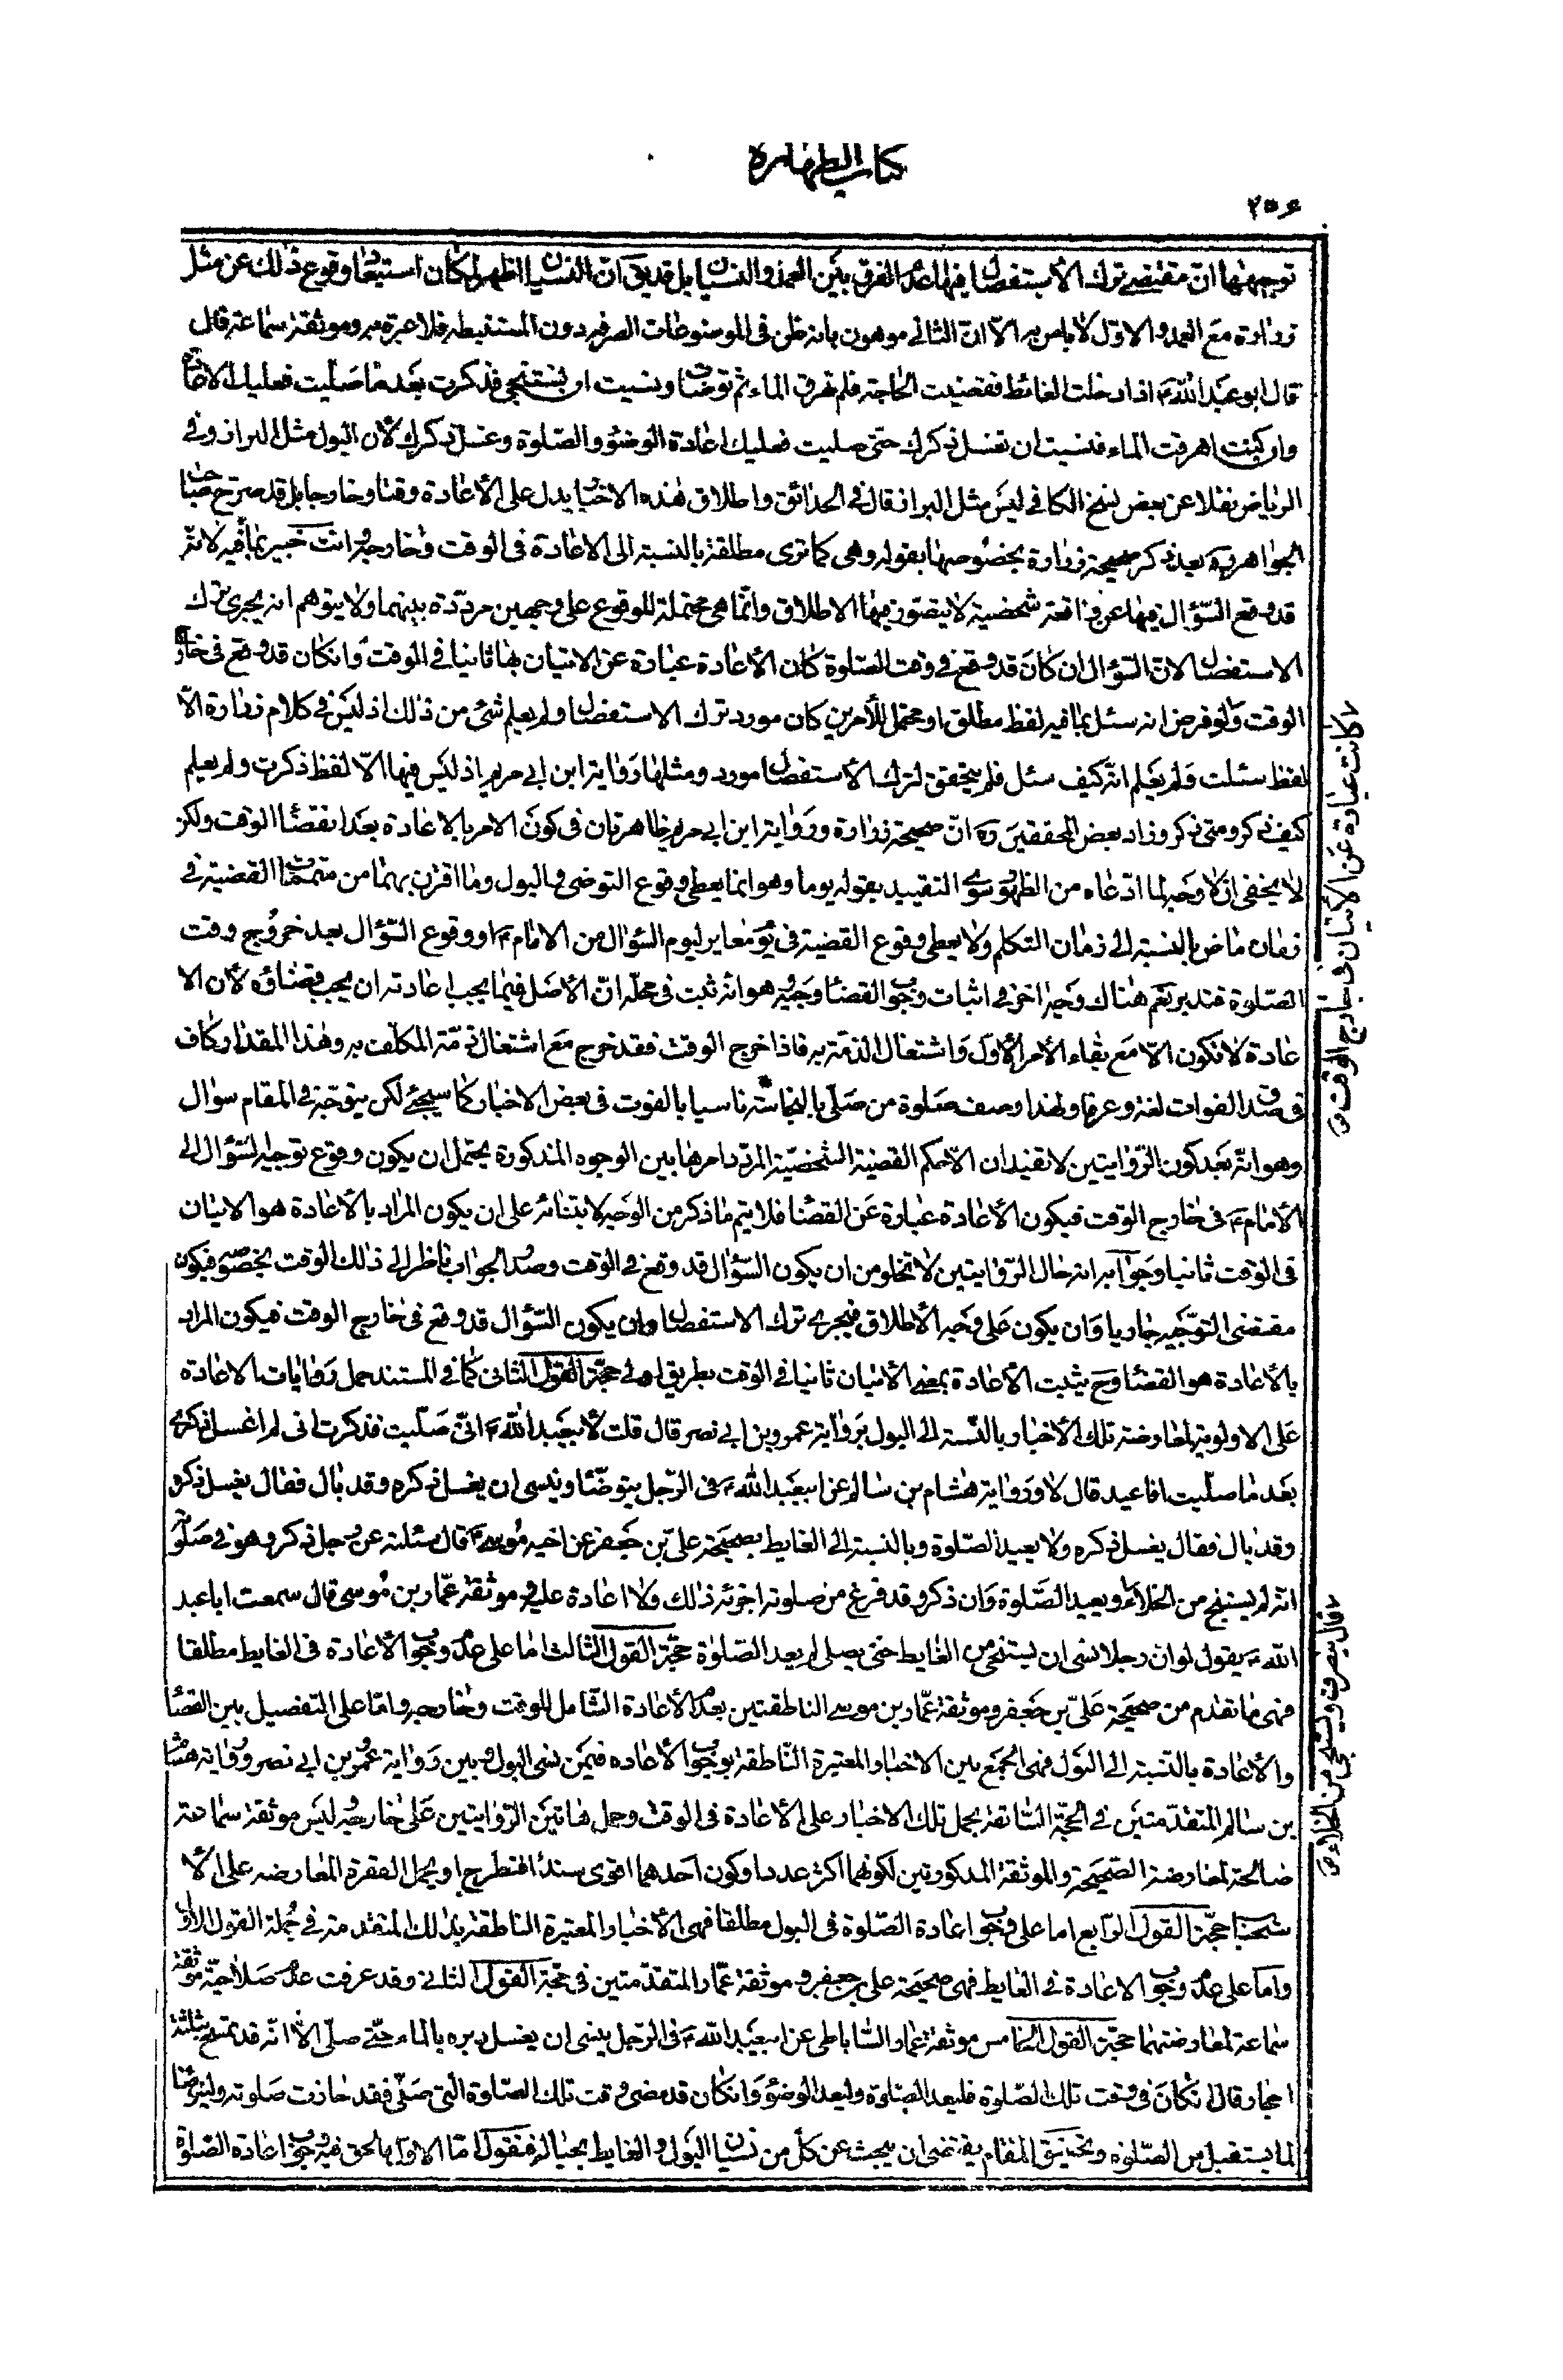 كتاب الطهارة
٢٥٤
توجيهها انّ مقتضى ترك الأستفصال فيها عدم الفرق بين العمد والنسيان بل قد يق انّ النسيان اظهر لمكان استبعاد وقوع ذلك عن مثل
زرارة مع العمد والاوّل لا باس به الّا انّ الثاني موهون بانه ظن في الموضوعات الصرفه دون المستنبطه فلا عبرة به وموثقة سماعة قال
قال ابو عبد اللّه ع اذا دخلت الغائط فقضيت الحاجة فلم تهرق الماء ثم توضات ونسيت ان تستنجى فذكرت بعد ما صليت فعليك الاعادة
وان كنت اهرقت الماء فنسيت ان تغسل ذكرك حتى صليت فعليك اعادة الوضوء والصّلوة وغسل ذكرك لأن البول مثل البراز وفي
الرياض نقلا عن بعض نسخ الكافي ليس مثل البراز قال في الحدائق واطلاق هذه الاخبار يدل على الأعادة وقتا وخارجا بل قد صرح صاحب
الجواهر ره بعد ذكر صحيحة زرارة بخصوصها بقوله وهى كما ترى مطلقة بالنسبة الى الاعادة في الوقت وخارجه وانت خبير بما فيه لانّه
قد وقع السّؤال فيها عن واقعة شخصية لا يتصور فيها الاطلاق وانّما هي محتملة للوقوع على وجهين مردّدة بينهما ولا يتوهم انه يجرى ترك
الاستفصال لانّ السّؤال ان كان قد وقع في وقت الصّلوة كان الأعادة عبارة عن الاتيان بها ثانيا في الوقت وان كان قد وقع في خارج
الوقت ولو فرض انه سئل بما فيه لفظ مطلق او محتمل للأمرين كان مورد ترك الاستفصال ولم يعلم شئ من ذلك اذ ليس في كلام زرارة الّا
لفظ سئلت ولم يعلم انّه كيف سئل فلم يتحقق لترك الأستفصال مورد ومثلها رواية ابن ابي مريم اذ ليس فيها الّا لفظ ذكرت ولم يعلم
كيف ذكر ومتى ذكر وزاد بعض المحققين ره انّ صحيحة زرارة ورواية ابن ابي مريم ظاهرتان في كون الامر بالاعادة بعد انقضاء الوقت ولكن
لا يخفى انه لا وجه لما ادّعاه من الظهور سوى التقييد بقوله يوما وهو انما يعطى وقوع التوضى والبول وما اقترن بهما من متممات القضية في
زمان ماض بالنسبة الى زمان التكلم ولا يعطى وقوع القضية في يوم مغاير ليوم السّؤال من الامام ع او وقوع السّؤال بعد خروج وقت
الصّلوة فتدبر نعم هناك وجه اخر في اثبات وجوب القضاء وجيه وهو انّه ثبت في محلّه انّ الأصل فيما يجب اعادته ان يجب قضاؤه لأن الا
عادة لا تكون الّا مع بقاء الأمر الأول واشتغال الذمّة به فاذا خرج الوقت فقد خرج مع اشتغال ذمّة المكلّف به وهذا المقدار كاف
في صدق الفوات لغة وعرفا ولهذا وصف صلوة من صلّى بالنجاسة ناسيا بالفوت في بعض الاخبار كما سيجئ لكن يتوجّه في المقام سؤال
وهو انّه بعد كون الرّوايتين لا تفيدان الّا حكم القضية الشخصيّة المردّد امرها بين الوجوه المذكورة يحتمل ان يكون وقوع توجيه السّؤال الى
الأمام ع في خارج الوقت فيكون الأعادة عبارة عن القضاء فلا يتم ما ذكر من الوجه لابتنائه على ان يكون المراد بالأعادة هو الاتيان
في الوقت ثانيا وجوابه انه حال الرّوايتين لا تخلو من ان يكون السّؤال قد وقع في الوقت وصدر الجواب ناظرا الى ذلك الوقت بخصوصه فيكون
مقتضى التوجيه جاريا وان يكون على وجه الأطلاق فيجرى ترك الاستفصال وان يكون السّؤال قد وقع في خارج الوقت فيكون المراد
بالأعادة هو القضاء وح يثبت الأعادة بمعنى الأتيان ثانيا في الوقت بطريق اولى حجّة القول الثانى كما في المستند حمل روايات الاعادة
على الاولوية لمعارضة تلك الأخبار بالنّسبة الى البول برواية عمرو بن ابي نصر قال قلت لأبيعبد اللّه ع انّى صلّيت فذكرت انى لم اغسل ذكرى
بعد ما صلّيت افاعيد قال لا ورواية هشام بن سالم عن ابيعبد اللّه ع في الرّجل يتوضّا وينسى ان يغسل ذكره وقد بال فقال يغسل ذكره
وقد بال فقال يغسل ذكره ولا يعيد الصّلوة وبالنسبة الى الغايط بصحيحة علىّ بن جعفر عن اخيه موسى ع قال سئلته عن رجل ذكر وهو في صلوته
انّه لم يستنج من الخلاء ويعيد الصّلوة وان ذكر وقد فرغ من صلوته اجزئه ذلك ولا اعادة عليه وموثقة عمّار بن موسى قال سمعت ابا عبد
اللّه ع يقول لو ان رجلا نسى ان يستنجى من الغايط حتى يصلى لم يعد الصّلوة حجّة القول الثّالث اما على عدم وجوب الأعادة في الغايط مطلقا
فهى ما تقدم من صحيحة علىّ بن جعفر وموثقة عمّار بن موسى الناطقتين بعدم الأعادة الشّامل للوقت وخارجه وامّا على التفصيل بين القضاء
والأعادة بالنّسبة الى البول فهى الجمع بين الاخبار المعتبرة النّاطقة بوجوب الأعاده فيمن نسى البول وبين رواية عمرو بن ابي نصر ورواية هشام
بن سالم المتقدّمتين في الحجّة السّابقة بحمل تلك الاخبار على الأعادة في الوقت وحمل هاتين الرّوايتين على خارجه وليس موثقة سماعة
صالحة لمعارضة الصّحيحة والموثقة المذكورتين لكونهما اكثر عددا وكون احدهما اقوى سندا فتطرح او يحمل الفقرة المعارضه على الأ
ستحباب حجّة القول الرّابع اما على وجوب اعادة الصّلوة في البول مطلقا فهى الأخبار المعتبرة الناطقة بذلك المتقدمة في جملة القول الاول
واما على عدم وجوب الاعادة في الغايط فهى صحيحة على بن جعفر وموثقة عمّار المتقدّمتين في حجّة القول الثانى وقد عرفت عدم صلاحيّة موثقة
سماعة لمعارضتهما حجّة القول الخامس موثقة عمار السّاباطى عن ابيعبد اللّه ع في الرّجل ينسى ان يغسل دبره بالماء حتّى صلّى الّا انّه قد تمسّح بثلثة
احجار قال ان كان في وقت تلك الصّلوة فليعد الصّلوة وليعد الوضوء وان كان قد مضى وقت تلك الصّلوة التى صلّى فقد جازت صلوته وليتوضّا
لما يستقبل من الصّلوة وتحقيق المقام يقتضى ان يبحث عن كلّ من نسيان البول والغايط بحياله فنقول امّا الاوّل فالحق فيه وجوب اعادة الصّلوة
كانت عبارة عن الأتيان في خارج الوقت
قال ينصرف ويستنجى من الخلاء